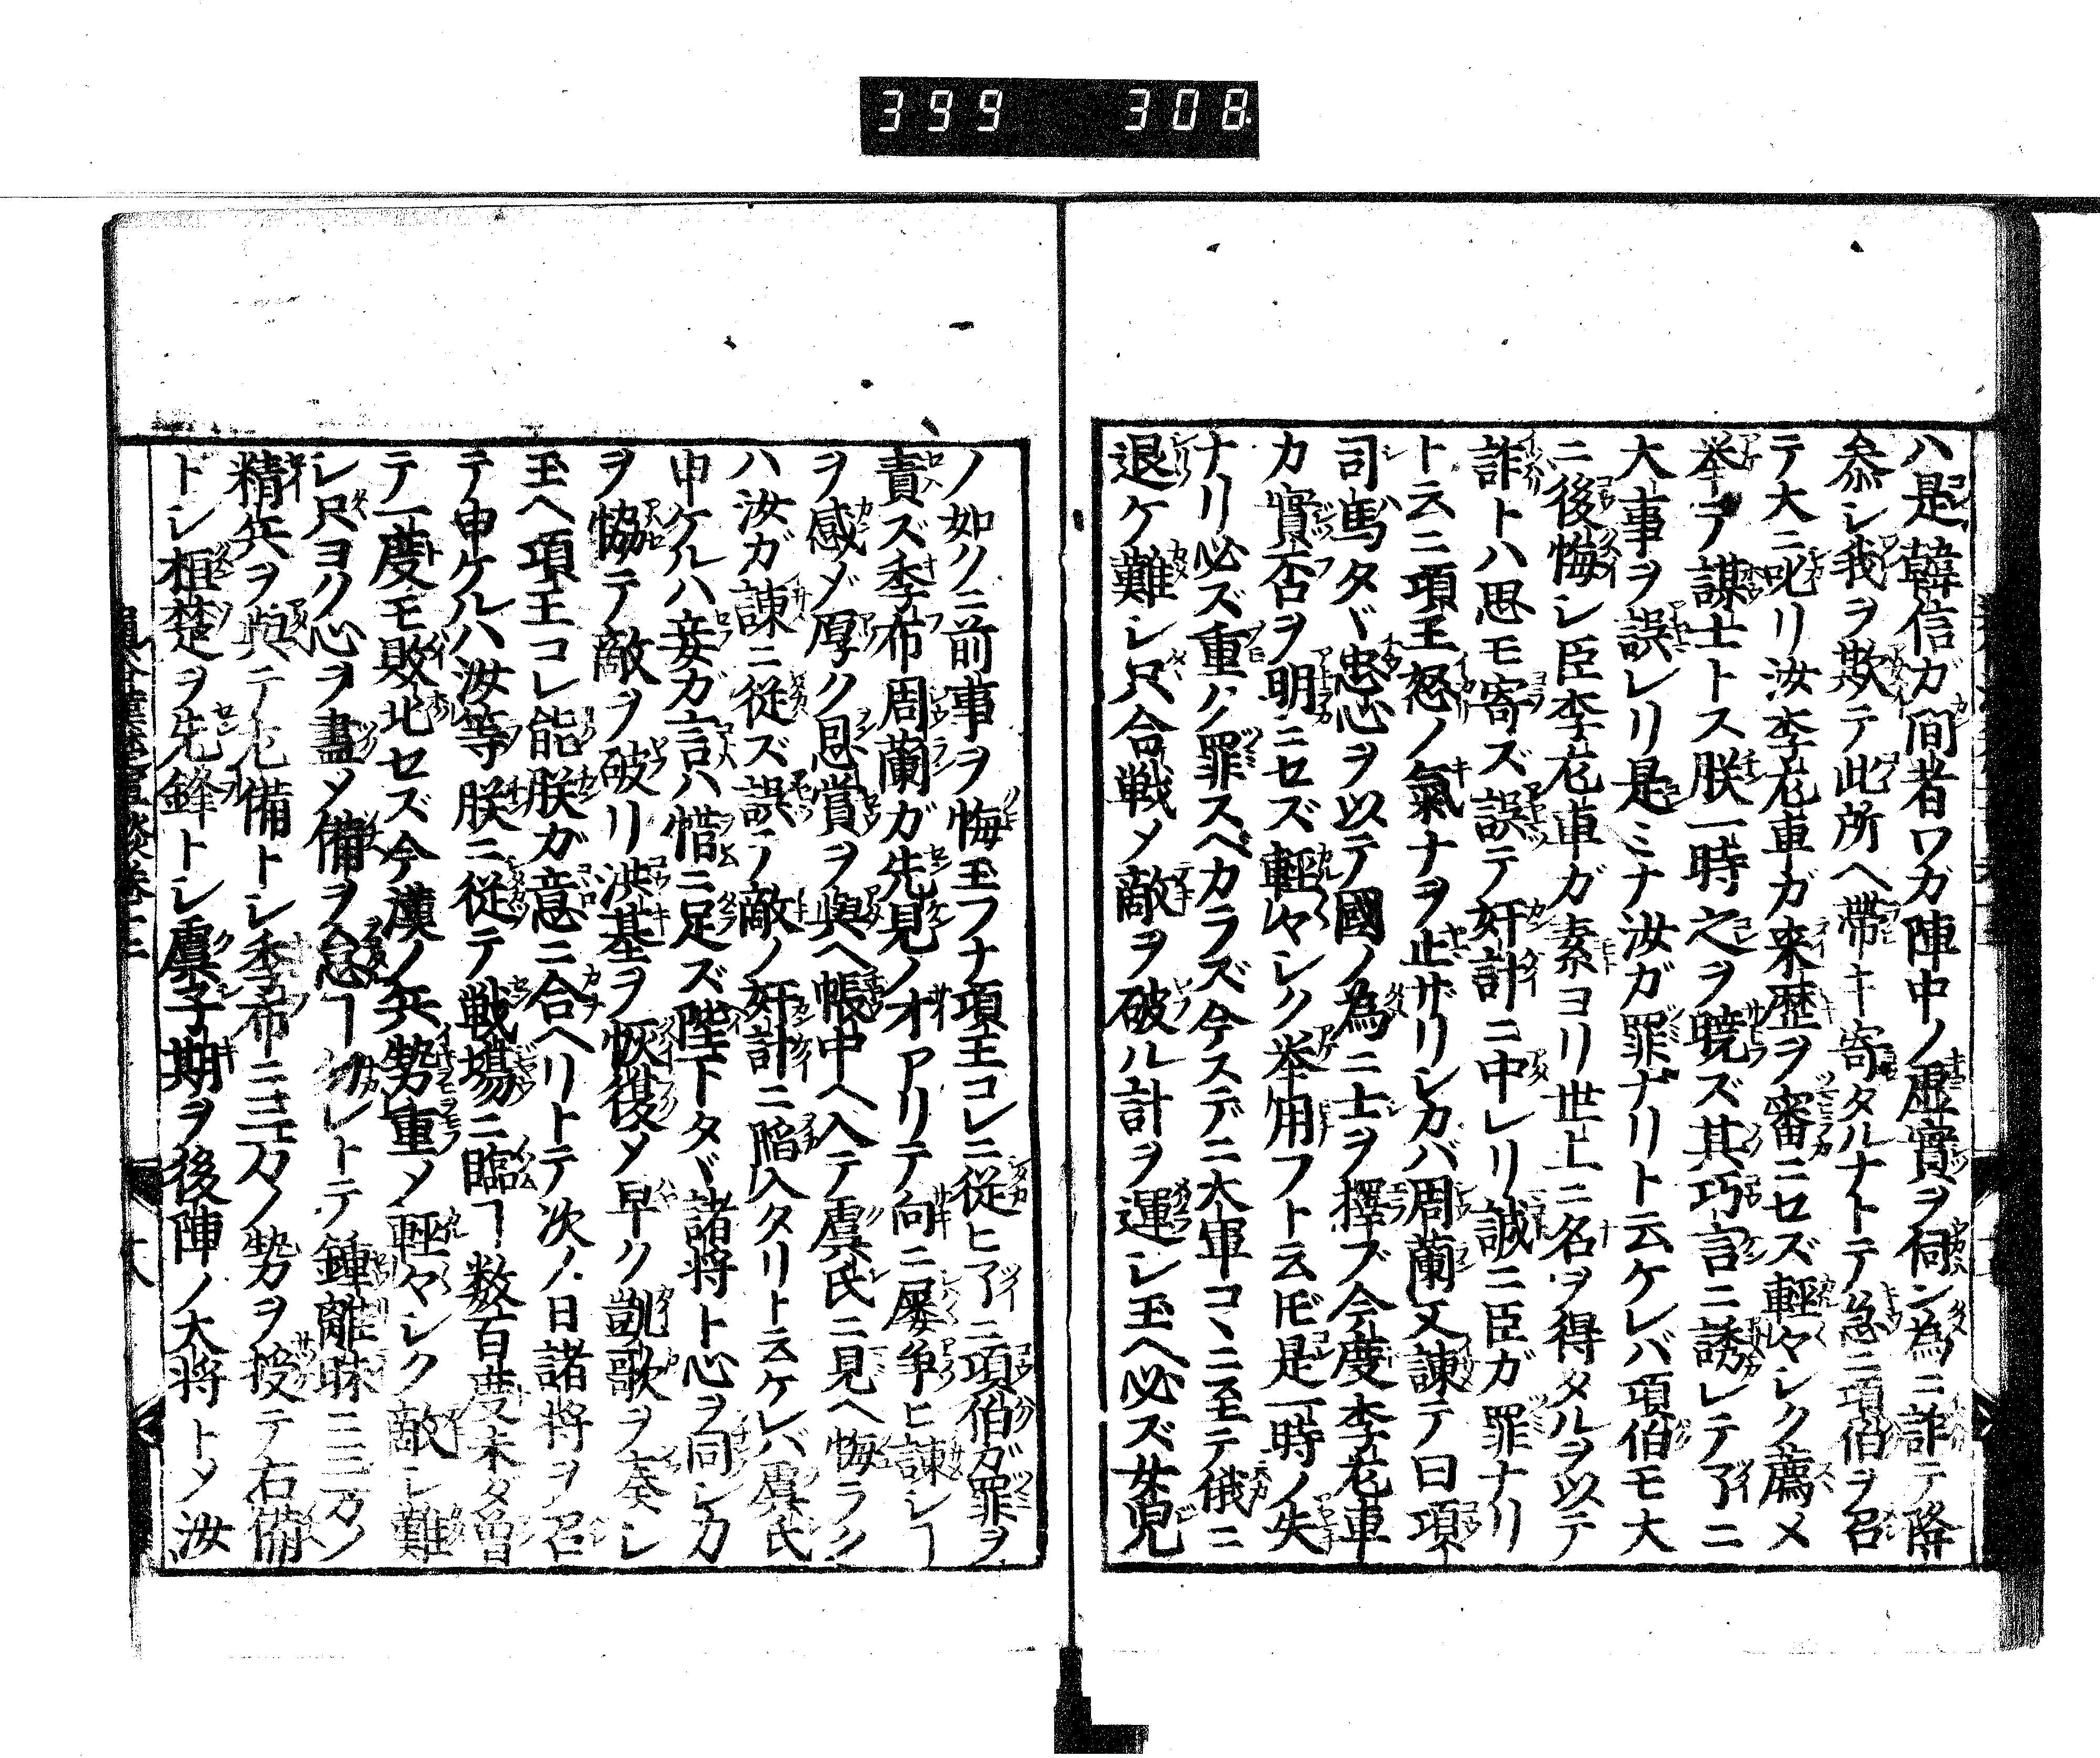 399 308.
ハ是韓信ガ間者ワガ陣中ノ虚實ヲ伺ン為ニ詐テ降
参シ我ヲ欺テ此所ヘ帯キ寄タルナトテ急ニ項伯ヲ召
テ大ニ叱リ汝李左車ガ来歴ヲ審ニセズ輕々シク薦メ
挙テ謀士トス朕一時之ヲ暁ズ其巧言ニ誘レテ了ニ
大事ヲ誤レリ是ミナ汝ガ罪ナリト云ケレバ項伯モ大
ニ後悔シ臣李左車ガ素ヨリ世上ニ名ヲ得タルヲ以テ
詐トハ思モ寄ズ誤テ奸計ニ中レリ誠ニ臣ガ罪ナリ
ト云ニ項王怒ノ氣ナヲ止ザリシカバ周蘭又諌テ曰項
司馬タヾ忠心ヲ以テ國ノ為ニ士ヲ擇ブ今度李左車
カ實否ヲ明ニセズ輕々シク挙用フト云𪜈是一時ノ失
ナリ必ズ重ク罪スベカラズ今スデニ大軍コヽニ至テ俄ニ
退ケ難シ只合戦メ敵ヲ破ル計ヲ運シ玉ヘ必ズ女児
ノ如クニ前事ヲ悔玉フナ項王コレニ従ヒ了ニ項伯ガ罪ヲ
責ズ季布周蘭ガ先見ノ才アリテ向ニ屡争ヒ諌シヿ
ヲ感ゾ厚ク恩賞ヲ與ヘ帳中ヘ入テ虞氏ニ見ヘ悔ラク
ハ汝ガ諌ニ従ズ誤テ敵ノ奸計ニ陥入タリト云ケレバ虞氏
申ケルハ妾ガ言ハ惜ニ足ズ陛下タヾ諸将ト心ヲ同シカ
ヲ恊テ敵ヲ破リ洪基ヲ恢復メ早ク凱歌ヲ奏シ
玉ヘ項王コレ能朕ガ意ニ合ヘリトテ次ノ日諸将ヲ召
テ申ケルハ汝等朕ニ従テ戦場ニ臨ヿ数百度未ダ曽
テ一度モ敗北セズ今漢ノ兵勢重メ輕々シク敵シ難
シ只ヨク心ヲ盡メ備ヲ怠ヿ勿レトテ鍾離昧ニ三万ノ
精兵ヲ與テ左備トシ季布ニ三万ノ勢ヲ授テ右備
トシ桓楚ヲ先鋒トシ虞子期ヲ後陣ノ大将トメ汝